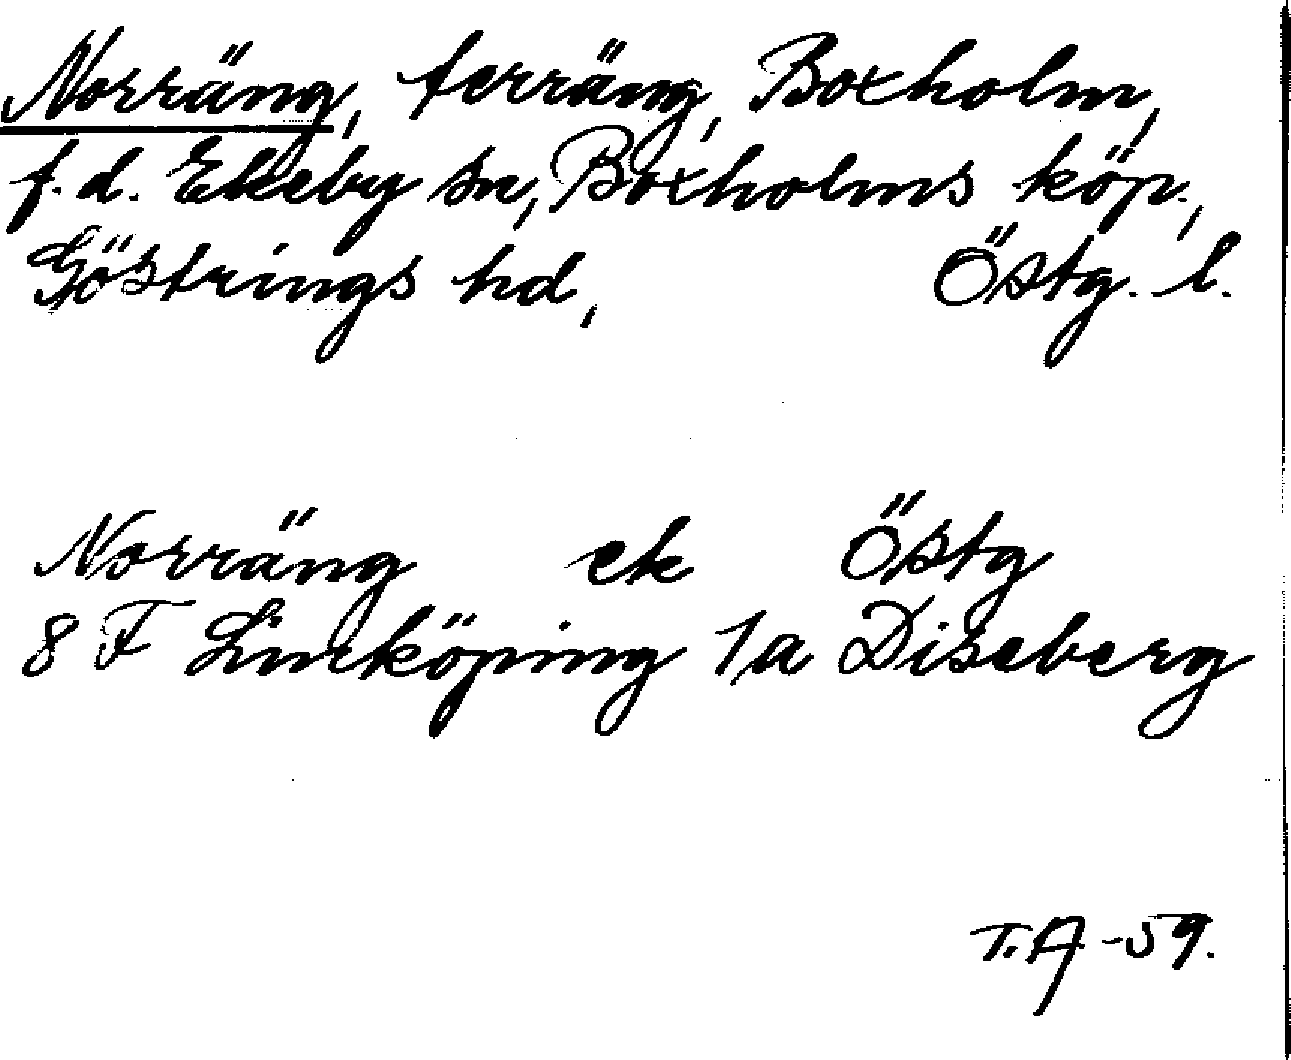 Norräng, terräng, Boxholm,
f.d. Ekeby sn, Boxholms köp.,
Göstrings hd, Östg. l.
Norräng ek Östg
8 F Linköping 1a Diseberg
T.A -59.